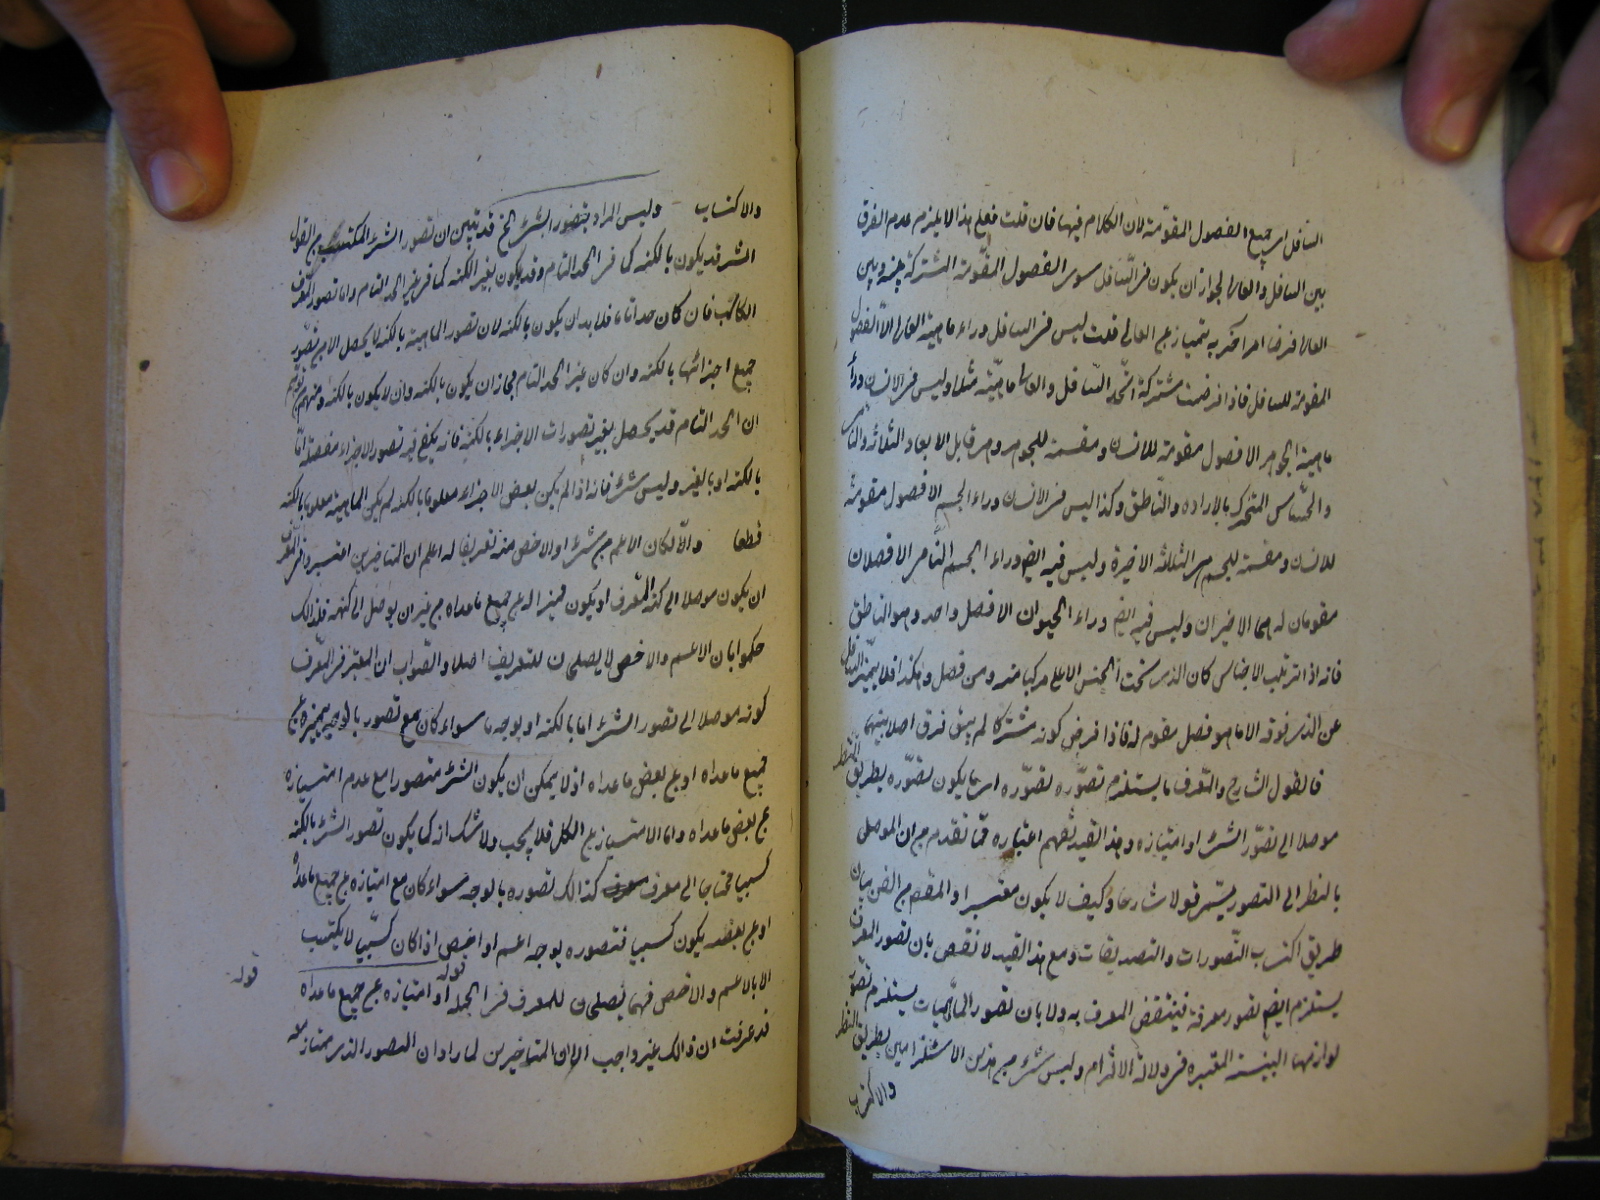 السافل اى جميع الفصول المقومة لان الكلام فيها فان قلت فعلى هذا لا يلزم عدم الفرق
بين السافل والعالى لجواز ان يكون فى السافل سوى الفصول المقومة المشتركة بينه وبين
العالى فرضا امر آخر به يتميز عن العالى قلت ليس فى السافل وراء ماهية العالى الا الفصول
المقومة للسافل فاذا فرضت مشتركة اتحد السافل والعالى ماهية مثلا وليس فى الانسان وراء
ماهية الجوهر الا فصول مقومة للانسان ومقسمة للجوهر وهى قابل الابعاد الثلاثة والنامى
والحساس المتحرك بالارادة والناطق وكذا ليس فى الانسان وراء الجسم الا فصول مقومة
للانسان ومقسمة للجسم هى الثلاثة الاخيرة وليس فيه ايضا وراء الجسم النامى الا فصلان
مقومان له هما الاخيران وليس فيه ايضا وراء الحيوان الا فصل واحد وهو الناطق
فانه اذا ترتب الاجناس كان الذى تحت الجنس الاعلى مركبا منه ومن فصل وهكذا فلا يتميز السافل
عن الذى فوقه الا بما هو فصل مقوم له فاذا فرض كونه مشتركا لم يبق فرق اصلا بينهما
فالقول الشارح والمعرف ما يستلزم تصوره تصوره اى ما يكون تصوره بطريق النظر
موصلا الى تصور الشئ او امتيازه وهذا القيد يفهم اعتباره مما تقدم من ان الموصل
بالنظر الى التصور يسمى قولا شارحا وكيف لا يكون معتبرا والمقصود من الفن بيان
طريق اكتساب التصورات والتصديقات ومع هذا القيد لا نقض بان تصور المعرف
يستلزم ايضا تصور معرفه فينتقض المعرف به ولا بان تصور الماهيات يستلزم تصور
لوازمها البينة المعتبرة فى دلالة الالتزام وليس شئ من هذين الاستلزامين بطريق النظر
والاكتساب
والاكتساب وليس المراد بتصور الشئ الخ قد تبين ان تصور الشئ المكتسب من القول
الشارح قد يكون بالكنه كما فى الحد التام وقد يكون بغير الكنه كما فى غير الحد التام واما تصور المعرف
الكاسب فان كان حدا تاما فلا بد ان يكون بالكنه لان تصور الماهية بالكنه لا يحصل الا من تصور
جميع اجزائها بالكنه وان كان غير الحد التام جاز ان يكون بالكنه وان لا يكون بالكنه ومنهم من توهم
ان الحد التام قد يحصل بغير تصورات الاجزاء بالكنه فانه يكفى فيه تصور الاجزاء مفصلة اما
بالكنه او بالغير وليس بشئ فانه اذا لم يكن بعض الاجزاء معلوما بالكنه لم يكن الماهية معلومة بالكنه
قطعا والا لكان الاعم من شئ او الاخص منه تعريفا له اعلم ان المتأخرين اعتبروا فى المعرف
ان يكون موصلا الى كنه المعرف او يكون مميزا له عن جميع ما عداه من غير ان يوصل الى كنهه فلذلك
حكموا بان الاعم والاخص لا يصلحان للتعريف اصلا والصواب ان المعتبر فى المعرف
كونه موصلا الى تصور الشئ اما بالكنه او بوجه ما سواء كان مع تصور بالوجه يميزه عن
جميع ما عداه او عن بعض ما عداه اذ لا يمكن ان يكون الشئ متصورا مع عدم امتيازه
عن بعض ما عداه واما الامتياز عن الكل فلا يجب ولا شك انه كما يكون تصور الشئ بالكنه
كسبيا محتاجا الى معرف كذلك تصوره بالوجه سواء كان مع امتيازه عن جميع ما عداه
او عن بعضه يكون كسبيا فتصوره بوجه اعم او اخص اذا كان كسبيا لا يكتسب
الا بالاعم والاخص فهما يصلحان للمعرف فى الجملة قوله او امتيازه عن جميع ما عداه
قد عرفت ان ذلك غير واجب الا ان المتأخرين لما رأوا ان التصور الذى يمتاز معه
قوله